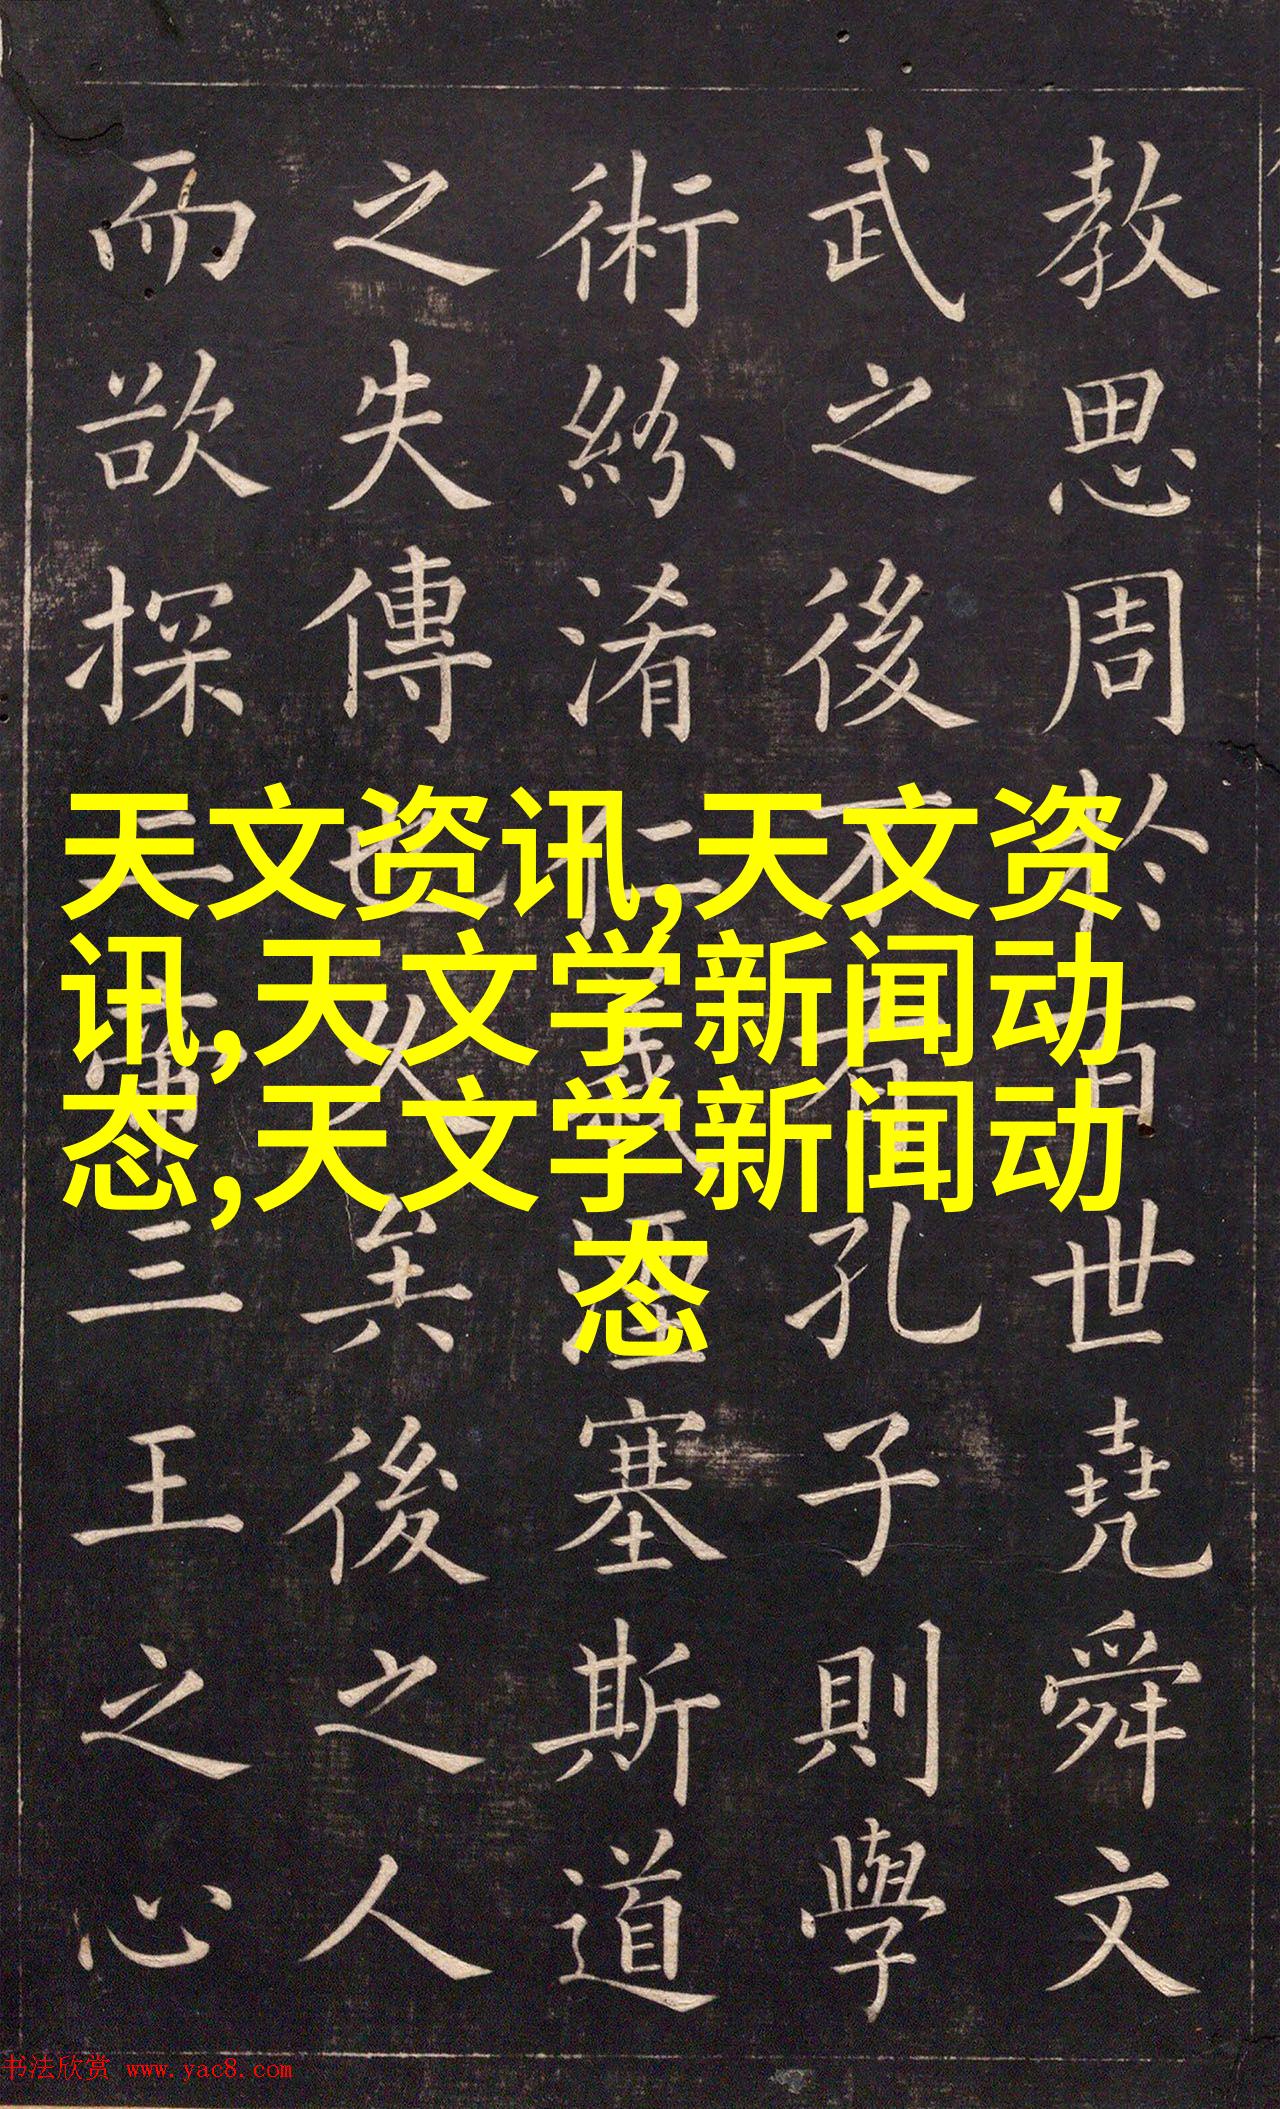 教思周於百世堯舜文
武之後不有孔子則學
術紛淆仁義湮塞斯道
之失傳也久矣後之人
而欲探二帝三王之心
天文资讯,天文资
讯,天文学新闻动
态,天文学新闻动
态
书法欣赏 www.yac8.com